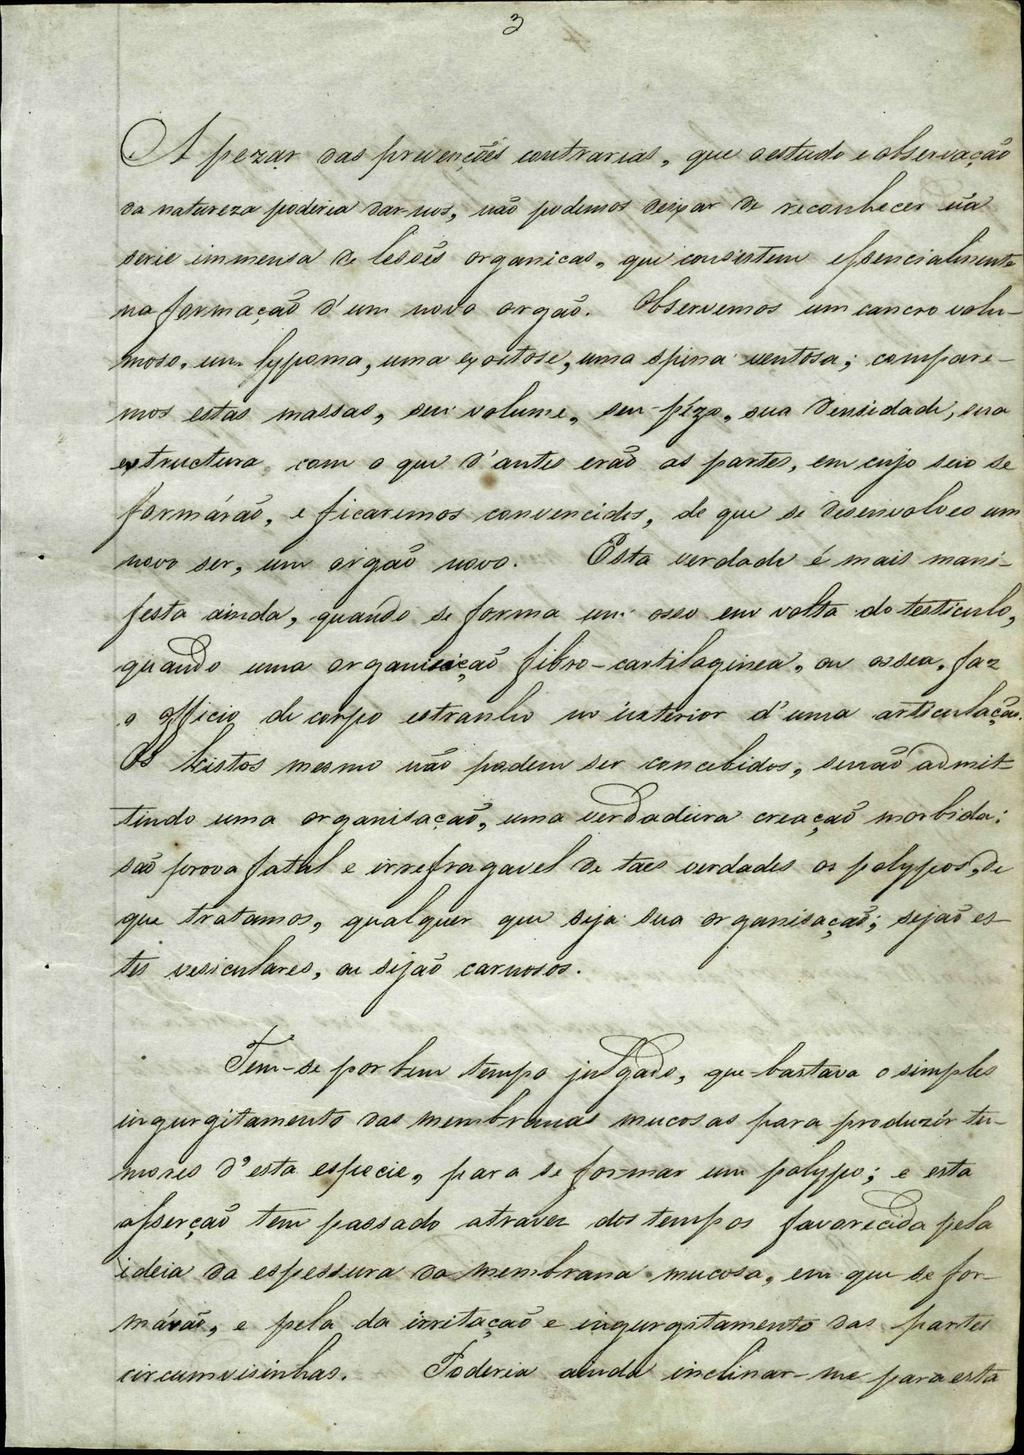 3
A pezar das prevenções contrarias, que o estudo e observação
da natureza poderia dar-nos, não podemos deixar de reconhecer úa
serie immensa de lesões organicas, que consistem essencialmente
na formação d'um novo orgão. Observemos um cancro volu-
moso, um lypoma, uma exostose, uma spina ventosa; compare-
mos estas massas, seu volume, seu pêzo, sua densidade, sua
extructura com o que d'antes erão as partes, em cujo seio se
formárão, e ficaremos convencidos, de que se desenvolveo um
novo ser, um orgão novo. Esta verdade é mais mani-
festa ainda, quando se forma um osso em volta do testiculo,
quando uma organisição fibro-cartilaginea, ou ossea, faz
o officio de corpo estranho no interior d'uma articulação.
Os kistos mesmo não podem ser concebidos, senão admit-
tindo uma organisação, uma verdadeira creação morbida;
são prova fatal e irrefragavel de taes verdades os polypos, de
que tratamos, qualquer que seja sua organisação; sejão es-
tes vesiculares, ou sejão carnosos.
Tem-se por bem tempo julgado, que bastava o simples
ingurgitamento das membranas mucosas para produzir tu-
mores d'esta especie, para se formar um polypo; e esta
asserção tem passado atravez dos tempos favorecida pela
ideia da espessura da membrana mucosa, em que se for-
márão, e pela da irritação e ingurgitamento das partes
circumvisinhas. Poderia ainda inclinar-me para esta